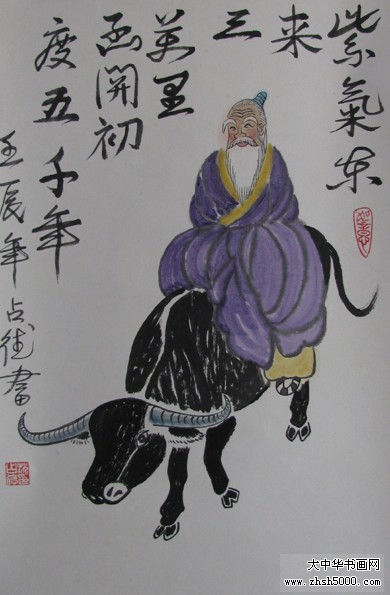 紫氣东
来
三
萬里
函開初
度五千年
壬辰年占
大中华书画网
www.zhsh5000.com